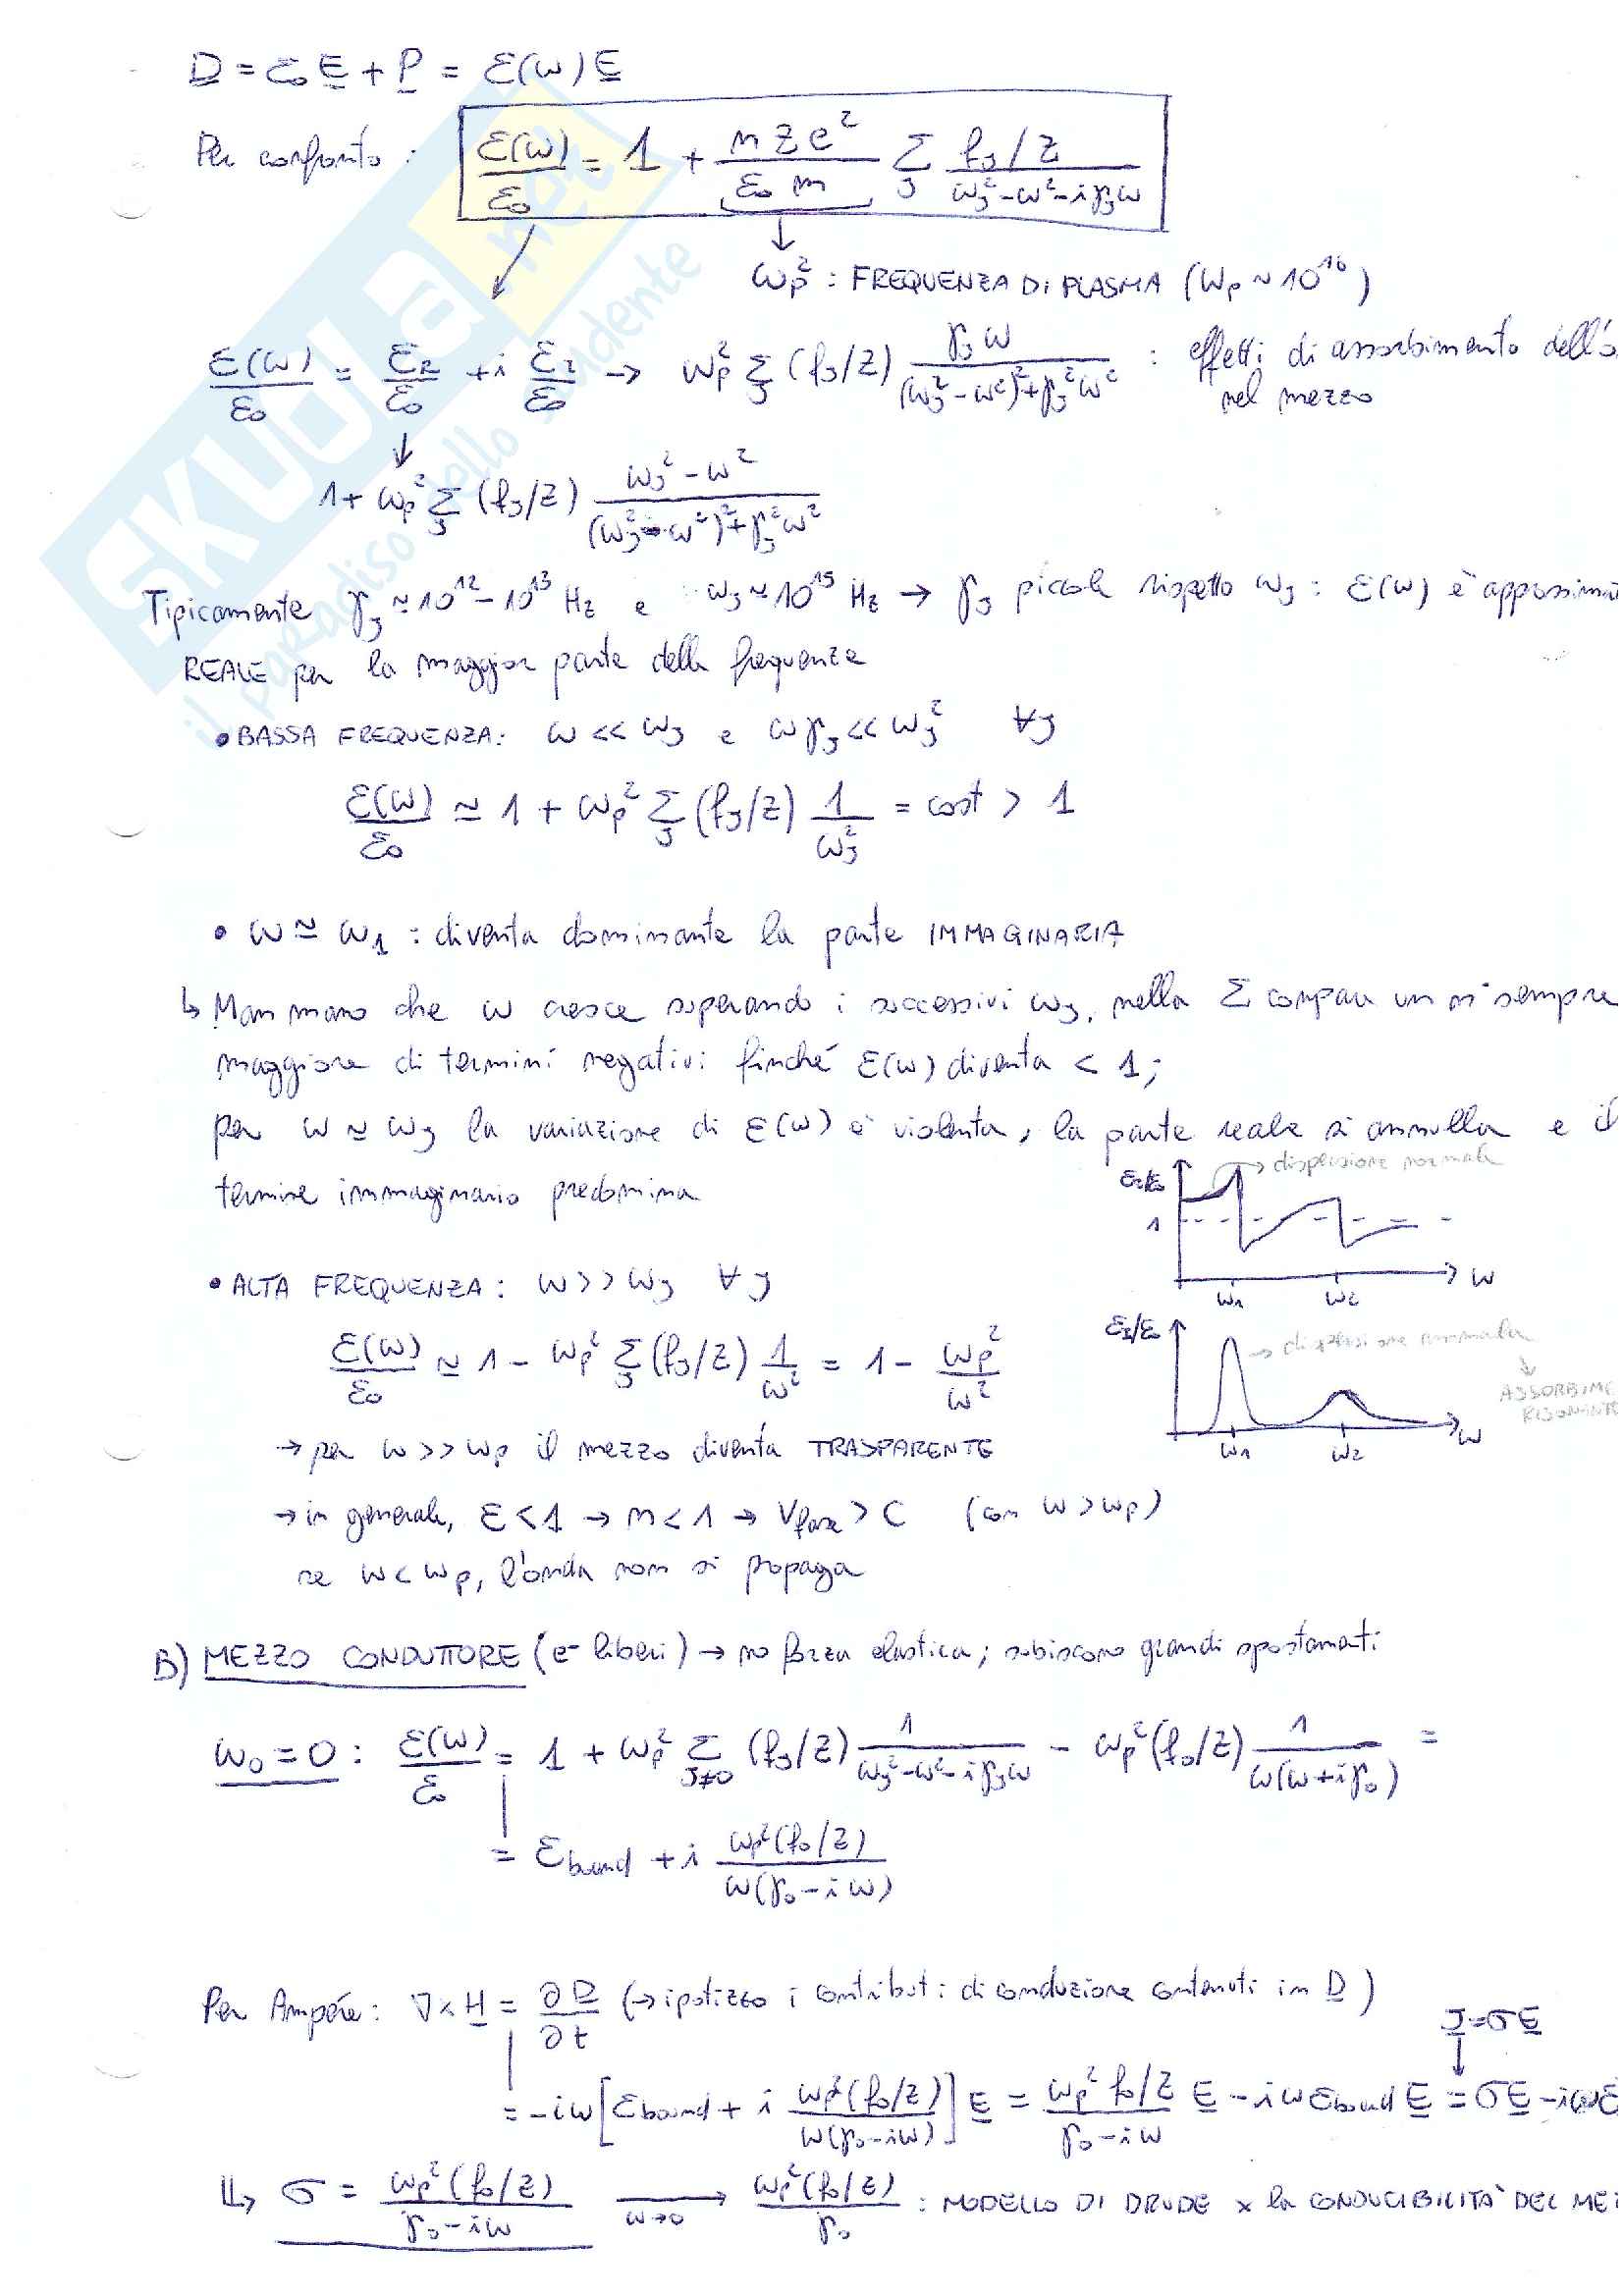 D = ε₀ E + P = ε(ω) E
Per confronto : ε(ω)/ε₀ = 1 + nZe²/(ε₀ m) Σ_j (f_j/Z)/(ω_j² - ω² - iγ_jω)
ω_p² : FREQUENZA DI PLASMA (ω_p ~ 10¹⁶)
ε(ω)/ε₀ = ε_R/ε₀ + i ε_I/ε₀ → ω_p² Σ_j (f_j/Z) γ_jω/((ω_j² - ω²)² + γ_j²ω²) : effetti di assorbimento dell'o
nel mezzo
1 + ω_p² Σ_j (f_j/Z) (ω_j² - ω²)/((ω_j² - ω²)² + γ_j²ω²)
Tipicamente γ_j ≈ 10¹² - 10¹³ Hz e ω_j ≈ 10¹⁵ Hz → γ_j piccole rispetto ω_j : ε(ω) è approssima
REALE per la maggior parte delle frequenze
• BASSA FREQUENZA: ω << ω_j e ωγ_j << ω_j² ∀j
ε(ω)/ε₀ ≃ 1 + ω_p² Σ_j (f_j/Z) 1/ω_j² = cost > 1
• ω ≃ ω₁ : diventa dominante la parte IMMAGINARIA
↳ Man mano che ω cresce superando i successivi ω_j, nella Σ compare un n° sempre
maggiore di termini negativi finché ε(ω) diventa < 1;
per ω ≃ ω_j la variazione di ε(ω) è violenta, la parte reale si annulla e il
termine immaginario predomina
ε_R/ε₀ → dispersione normale
1
ω
ω₁ ω₂
• ALTA FREQUENZA: ω >> ω_j ∀j
ε_I/ε₀ → dispersione anomala
ASSORBIME
RISONANTE
ω
ω₁ ω₂
ε(ω)/ε₀ ≃ 1 - ω_p² Σ_j (f_j/Z) 1/ω² = 1 - ω_p²/ω²
→ per ω >> ω_p il mezzo diventa TRASPARENTE
→ in generale, ε < 1 → n < 1 → v_fase > C (con ω > ω_p)
se ω < ω_p, l'onda non si propaga
B) MEZZO CONDUTTORE (e⁻ liberi) → no forza elastica; subiscono grandi spostamenti
ω₀ = 0 : ε(ω)/ε₀ = 1 + ω_p² Σ_j≠0 (f_j/Z) 1/(ω_j² - ω² - iγ_jω) - ω_p² (f₀/Z) 1/(ω(ω + iγ₀)) =
= ε_bound + i ω_p²(f₀/Z)/(ω(γ₀ - iω))
Per Ampére: ∇ × H = ∂D/∂t (→ ipotizzo i contributi di conduzione contenuti in D)
J = σE
= -iω [ε_bound + i ω_p²(f₀/Z)/(ω(γ₀ - iω))] E = (ω_p² f₀/Z)/(γ₀ - iω) E - iωε_bound E = σE - iωε
⇓ σ = ω_p²(f₀/Z)/(γ₀ - iω) ⟶ ω→0 ω_p²(f₀/Z)/γ₀ : MODELLO DI DRUDE x la CONDUCIBILITA' DEL MEZ
SKUOLA.net
il paradiso dello studente